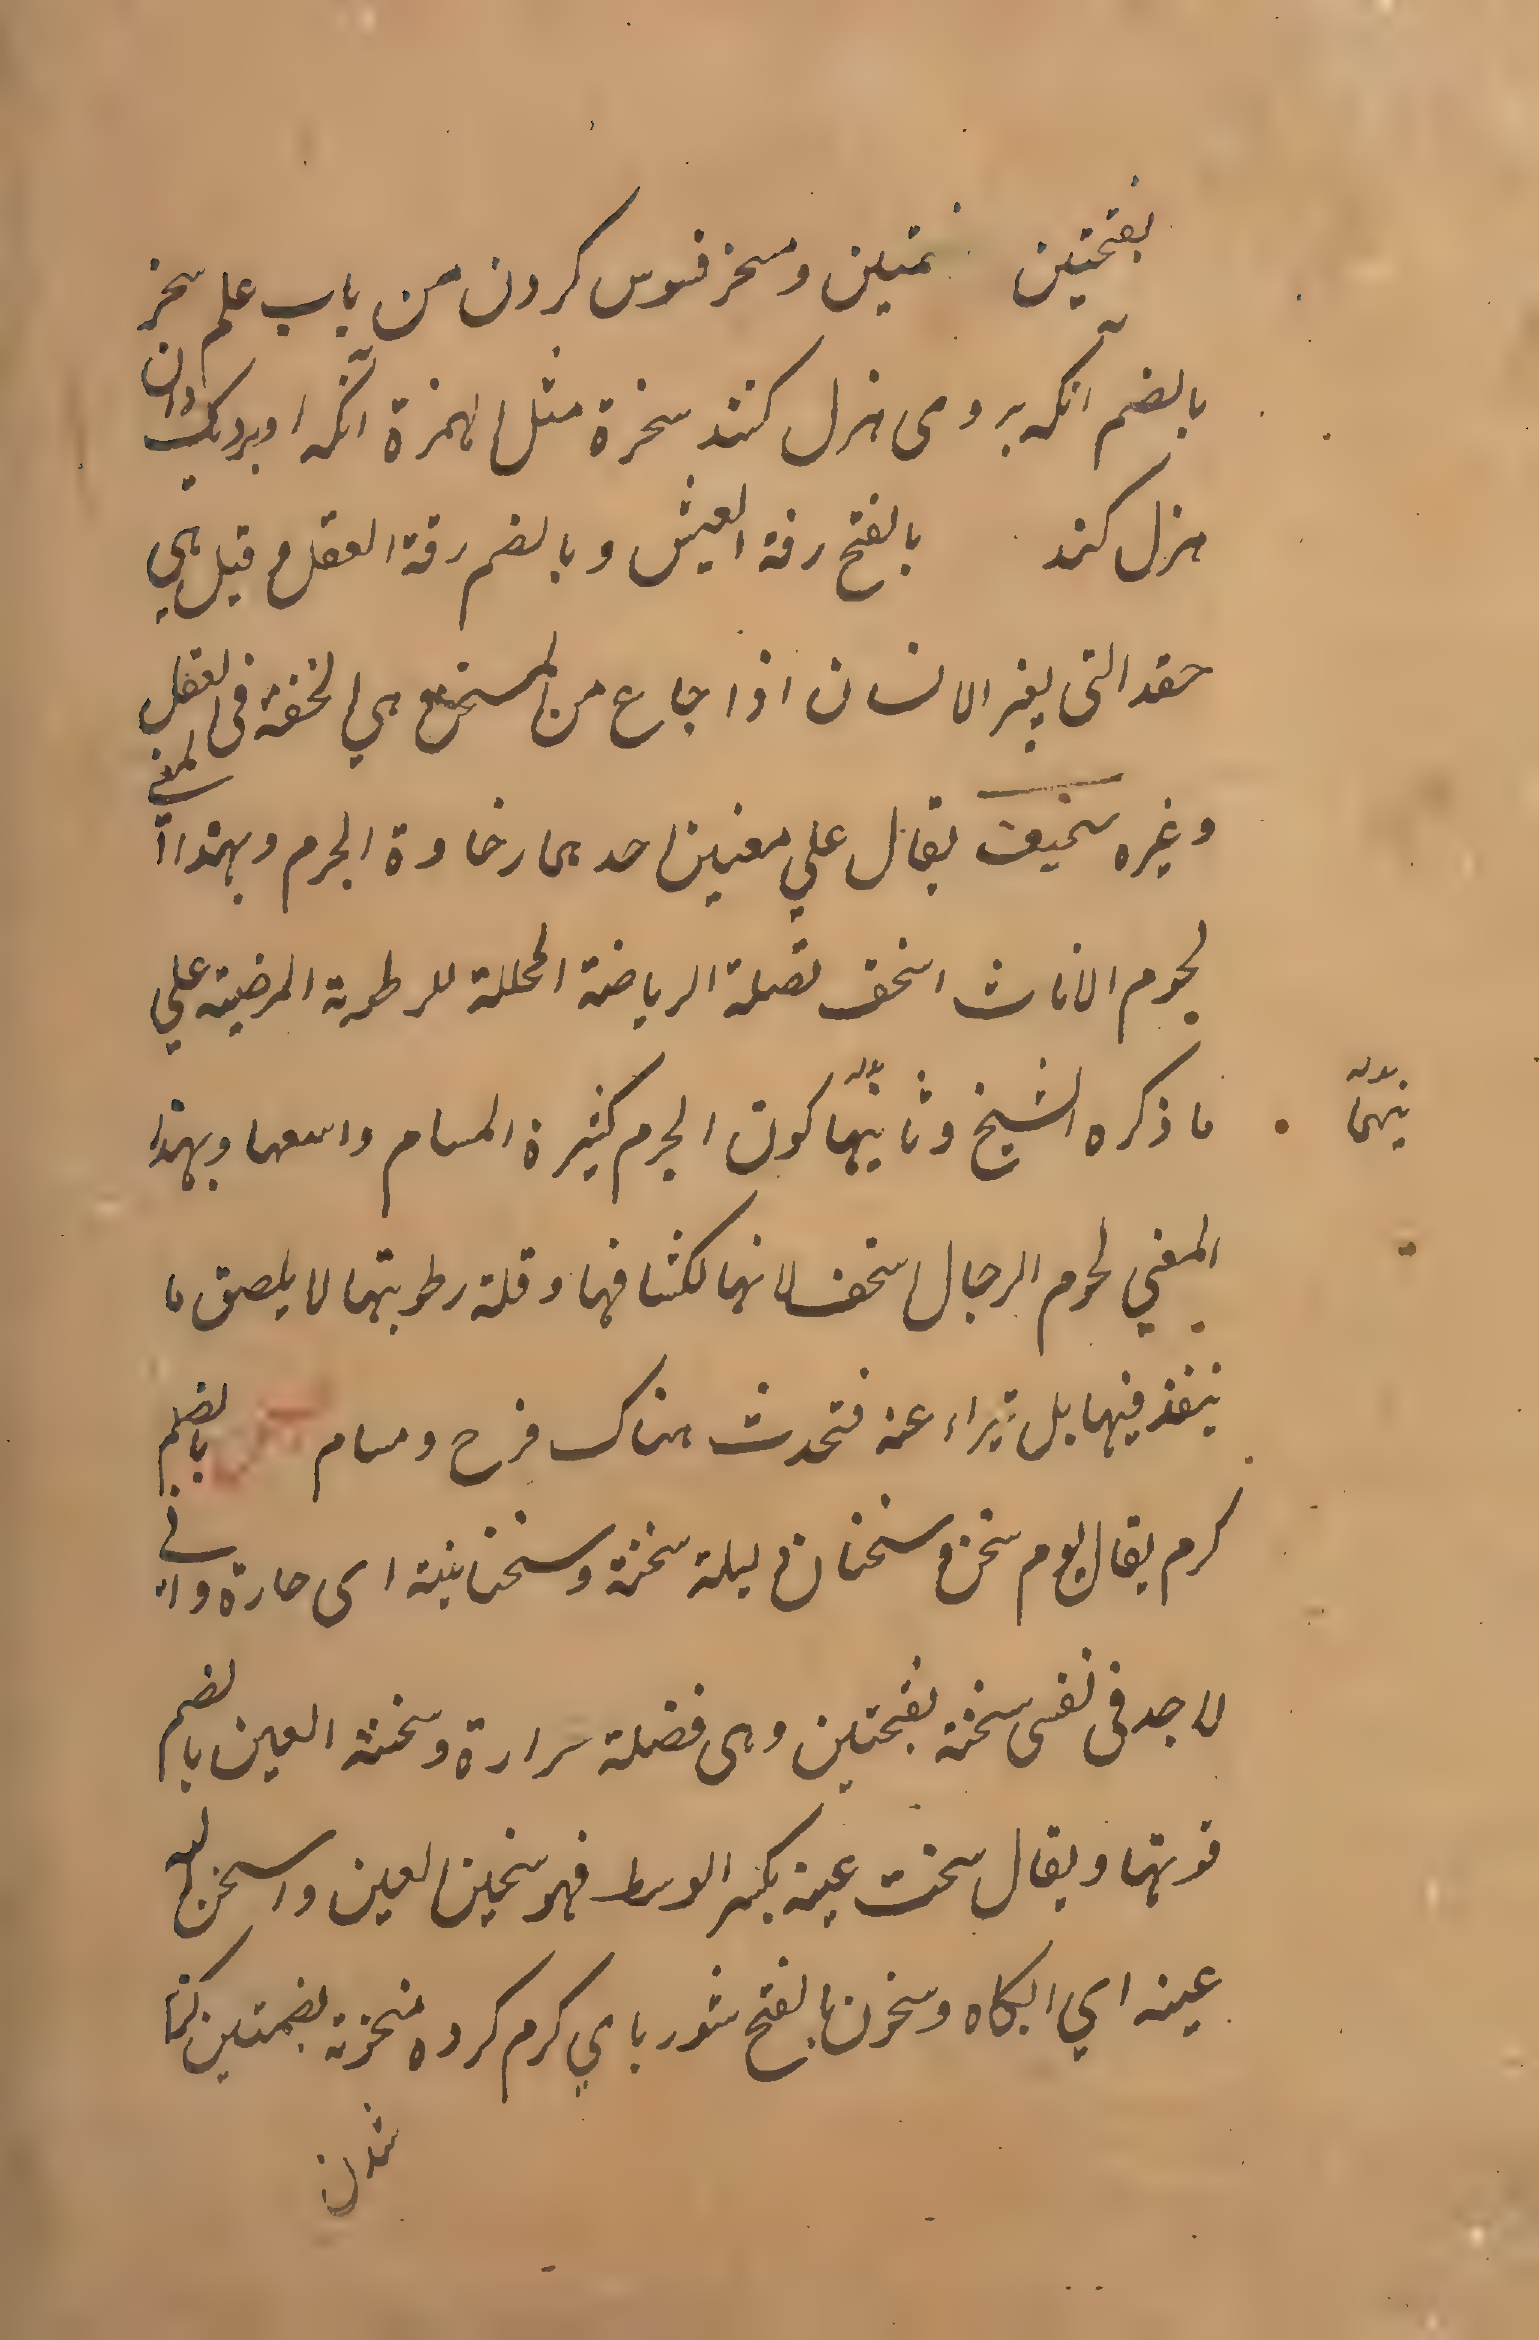 بفتحتین ضمتین وسخر فسوس کردن من باب علم سخر
بالضم آنکه بروی هزل کنند سخرة مثل الهمزة آنکه او بردیگران
هزل کند بالفتح رقة العیش و بالضم رقة العقل و قیل هی
التی یغیر الانسان اذا جاع من هی الخفة فی العقل
وغیره سخیف یقال علی معنیین احدهما رخاوة الجرم وبهذا المعنی
لحوم الاناث اسخف لقلة الریاضة المحللة للرطوبة المرضیة علی
ما ذکره الشیخ وثانیهما کون الجرم کثیرة المسام واسعها وبهذا
نیهما بدله
المعنی لحوم الرجال اسخف لانها لکثافتها وقلة رطوبتها لا یلصق ما
ینفذ فیها بل عنه فتحدث هناک فرج ومسام بالضم
کرم یقال یوم سخن وسخنان و لیلة سخنة وسخنانیة ای حارة وانی
لاجد فی نفسی سخنة بفتحتین وهی فضلة حرارة وسخنة العین بالضم
ویقال سخنت عینه بکسر الوسط فهو سخین العین واسخن الله
عینه ای ابکاه وسخون بالفتح شوربای کرم کرده بضمتین
شدن